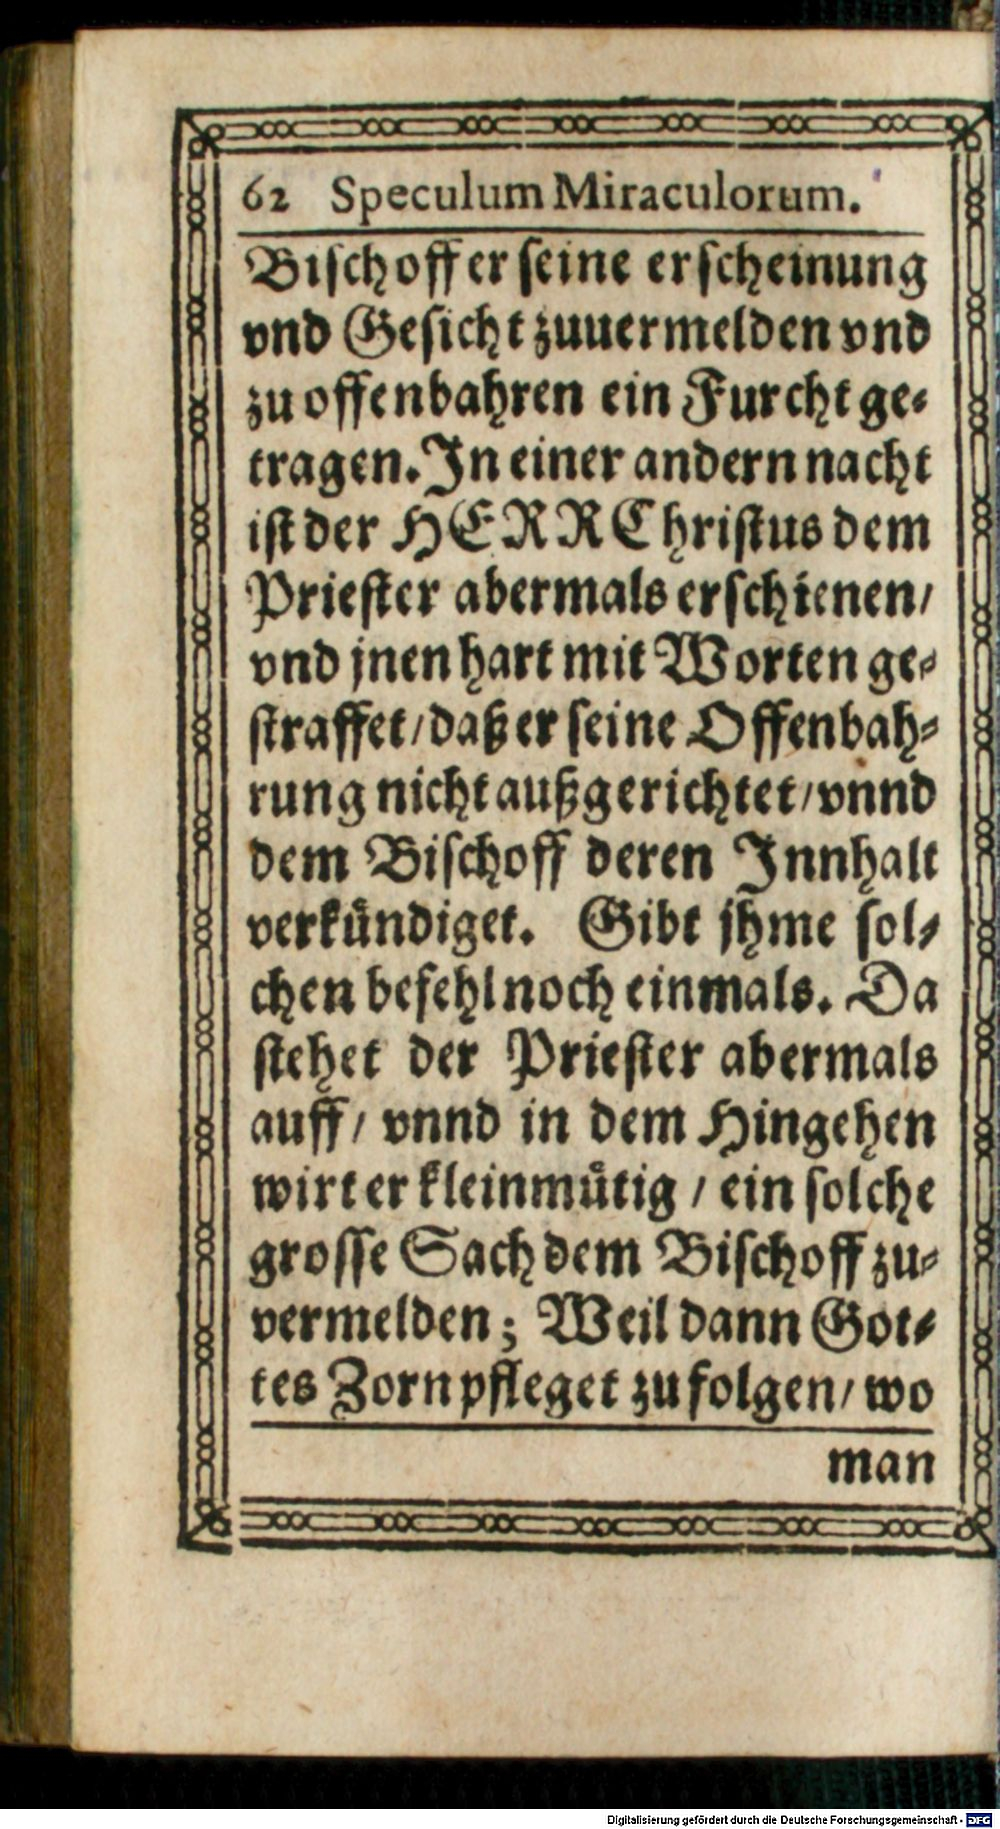 62 Speculum Miraculorum.
Bischoff er seine erscheinung
vnd Gesicht zuuermelden vnd
zu offenbahren ein Furcht ge-
tragen. In einer andern nacht
ist der HERR Christus dem
Priester abermals erschienen/
vnd jnen hart mit Worten ge-
straffet/ daß er seine Offenbah-
rung nicht außgerichtet/ vnnd
dem Bischoff deren Innhalt
verkündiget. Gibt jhme sol-
chen befehl noch einmals. Da
stehet der Priester abermals
auff/ vnnd in dem Hingehen
wirt er kleinmütig / ein solche
grosse Sach dem Bischoff zu-
vermelden; Weil dann Got-
tes Zorn pfleget zu folgen/ wo
man
Digitalisierung gefördert durch die Deutsche Forschungsgemeinschaft - DFG